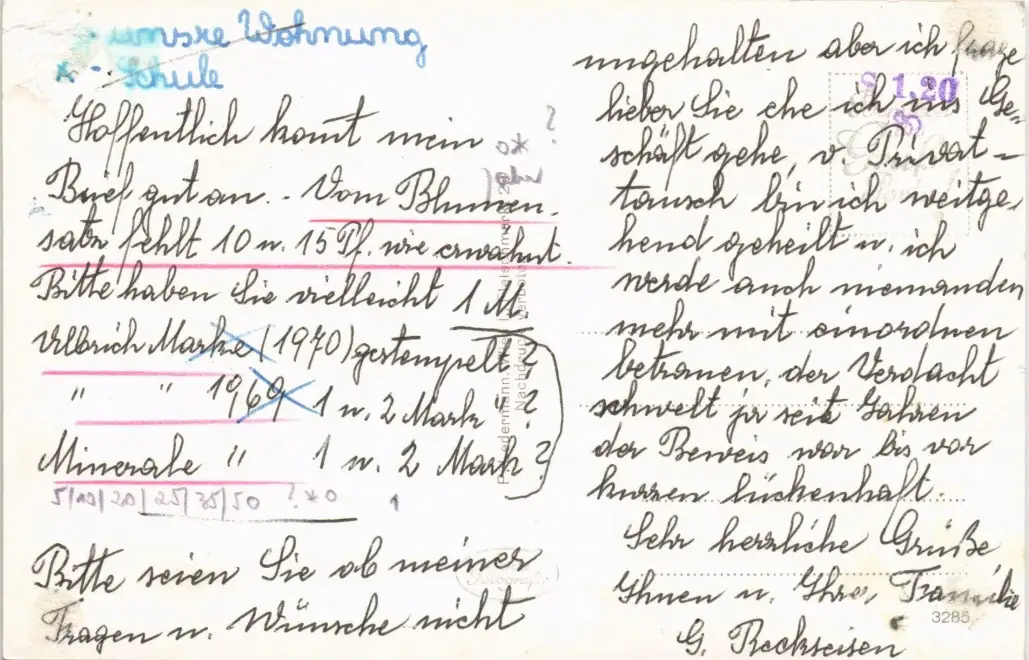 unsre Wohnung
x - Schule
Hoffentlich komt mein
Brief gut an. - Vom Blumen-
satz fehlt 10 u. 15 Pf. wie erwähnt.
Bitte haben Sie vielleicht 1 M
Ulbrich Marke (1970) gestempelt ?
" " 1969 1 u. 2 Mark " ?
Minerale " 1 u. 2 Mark ?
5/10/20/25/35/50 ? * o 1
o* ?
aber
Bitte seien Sie ob meiner
Fragen u. Wünsche nicht
ungehalten aber ich frage
lieber Sie ehe ich ins Ge-
S 1.20
8
schäft gehe, v. Privat-
tausch bin ich weitge-
hend geheilt u. ich
werde auch niemanden
mehr mit einordnen
betrauen, der Verdacht
schwelt ja seit Jahren
der Beweis war bis vor
kurzen lückenhaft.
Sehr herzliche Grüße
Ihnen u. Ihrer Familie
3285
G. Reckseisen